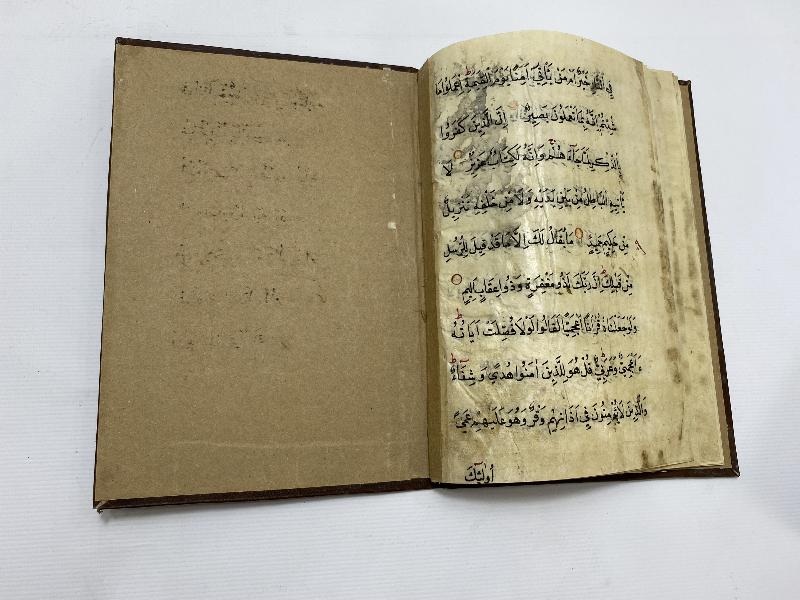 فِي النَّارِ خَيْرٌ اَمْ مَنْ يَأْتِي اٰمِنًا يَوْمَ الْقِيٰمَةِ اعْمَلُوا مَا
شِئْتُمْ اِنَّهُ بِمَا تَعْمَلُونَ بَصِيرٌ اِنَّ الَّذِينَ كَفَرُوا
بِالذِّكْرِ لَمَّا جَآءَ هُمْ وَاِنَّهُ لَكِتَابٌ عَزِيزٌ لَا
يَأْتِيهِ الْبَاطِلُ مِنْ بَيْنِ يَدَيْهِ وَلَا مِنْ خَلْفِهِ تَنْزِيلٌ
مِنْ حَكِيمٍ حَمِيدٍ مَا يُقَالُ لَكَ اِلَّا مَا قَدْ قِيلَ لِلرُّسُلِ
مِنْ قَبْلِكَ اِنَّ رَبَّكَ لَذُو مَغْفِرَةٍ وَذُو عِقَابٍ اَلِيمٍ
وَلَوْ جَعَلْنَاهُ قُرْاٰنًا اَعْجَمِيًّا لَقَالُوا لَوْلَا فُصِّلَتْ اٰيَاتُهُ
ءَاَعْجَمِيٌّ وَعَرَبِيٌّ قُلْ هُوَ لِلَّذِينَ اٰمَنُوا هُدًى وَشِفَآءٌ
وَالَّذِينَ لَا يُؤْمِنُونَ فِي اٰذَانِهِمْ وَقْرٌ وَهُوَ عَلَيْهِمْ عَمًى
اُولٰٓئِكَ